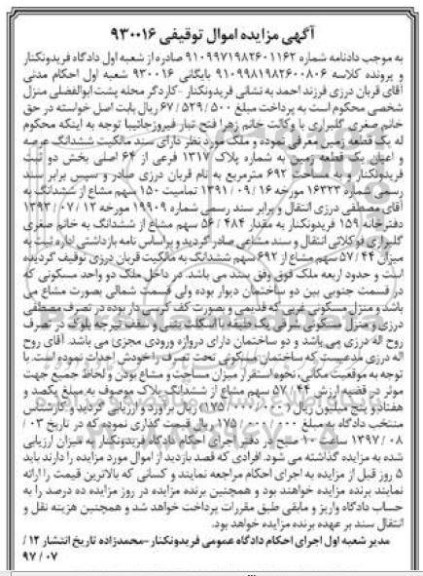 آگهی مزایده اموال توقیفی ۹۳۰۰۱۶
به موجب دادنامه شماره ۹۱۰۹۹۷۱۹۸۲۶۰۱۱۶۲ صادره از شعبه اول دادگاه فریدونکنار
و پرونده کلاسه ۹۱۰۹۹۸۱۹۸۲۶۰۰۸۰۶ بایگانی ۹۳۰۰۱۶ شعبه اول احکام مدنی
آقای قربان درزی فرزند احمد به نشانی فریدونکنار -کاردگر محله پشت ابوالفضلی منزل
شخصی محکوم است به پرداخت مبلغ ۶۷/۵۲۹/۵۰۰ ریال بابت اصل خواسته در حق
خانم صغری گلیرازی با وکالت خانم زهرا فتح تبار فیروزجائیبا توجه به اینکه محکوم
له یک قطعه زمین معرفی نموده و ملک مورد نظر دارای سند مالکیت ششدانگ عرصه
و اعیان یک قطعه زمین به شماره پلاک ۱۳۱۷ فرعی از ۶۴ اصلی بخش دو ثبت
فریدونکنار و به مساحت ۶۹۲ مترمربع به نام قربان درزی صادر و سپس برابر سند
رسمی شماره ۱۶۳۲۲ مورخه ۱۶/۰۹/۱۳۹۱ تمامیت ۱۵۰ سهم مشاع از ششدانگ به
آقای مصطفی درزی انتقال و برابر سند رسمی شماره ۱۹۹۰۹ مورخه ۱۲/۰۷/۱۳۹۳
دفترخانه ۱۵۹ فریدونکنار به مقدار ۵۶/۴۸۴ سهم مشاع از ششدانگ به خانم صغری
گلیرازی فوکلائی انتقال و سند مشاعی صادر گردید و براساس نامه بازداشتی اداره ثبت به
میزان ۵۷/۴۴ سهم مشاع از ۶۹۲ سهم ششدانگ به مالکیت قربان درزی توقیف گردیده
است و حدود اربعه ملک فوق وفق سند می باشد. در داخل ملک دو واحد مسکونی که
در قسمت جنوبی بین دو ساختمان دیوار بوده ولی قسمت شمالی بصورت مشاع می
باشد و منزل مسکونی غربی که قدیمی و بصورت کف کرسی دار بوده در تصرف مصطفی
درزی و منزل مسکونی شرقی یک طبقه با اسکلت بتنی و سقف تیرچه بلوک در تصرف
روح اله درزی می باشد و دو ساختمان دارای دروازه ورودی مجزی می باشد. آقای روح
اله درزی مدعیست که ساختمان مسکونی تحت تصرف را خودش احداث نموده است. با
توجه به موقعیت مکانی، نحوه استقرار میزان مساحت و مشاع بودن و لحاظ جمیع جهت
موثر در قضیه ارزش ۵۷/۴۴ سهم مشاع از ششدانگ پلاک موصوف به مبلغ یکصد و
هفتاد و پنج میلیون ریال (۱۷۵/۰۰۰/۰۰۰) ریال برآورد و ارزیابی گردید و کارشناس
منتخب دادگاه به مبلغ ۱۷۵/۰۰۰/۰۰۰ ریال قیمت گذاری نموده که در تاریخ ۰۳/
۰۸/۱۳۹۷ ساعت ۱۰ صبح در دفتر اجرای احکام دادگاه فریدونکنار به میزان ارزیابی
شده به مزایده گذاشته می شود. افرادی که قصد بازدید از اموال مورد مزایده را دارند باید
۵ روز قبل از مزایده به اجرای احکام مراجعه نمایند و کسانی که بالاترین قیمت را ارائه
نمایند برنده مزایده خواهند بود و همچنین برنده مزایده در روز مزایده ده درصد را به
حساب دادگاه واریز و مابقی طبق مقررات پرداخت خواهد شد و همچنین هزینه نقل و
انتقال سند بر عهده برنده مزایده خواهد بود.
مدیر شعبه اول اجرای احکام دادگاه عمومی فریدونکنار-محمدزاده تاریخ انتشار ۱۲/
۹۷/۰۷